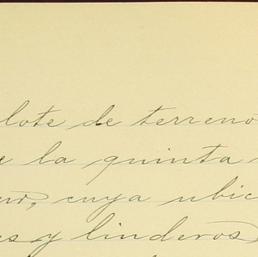 lote de terreno
la quinta
cuya ubic
y linderos